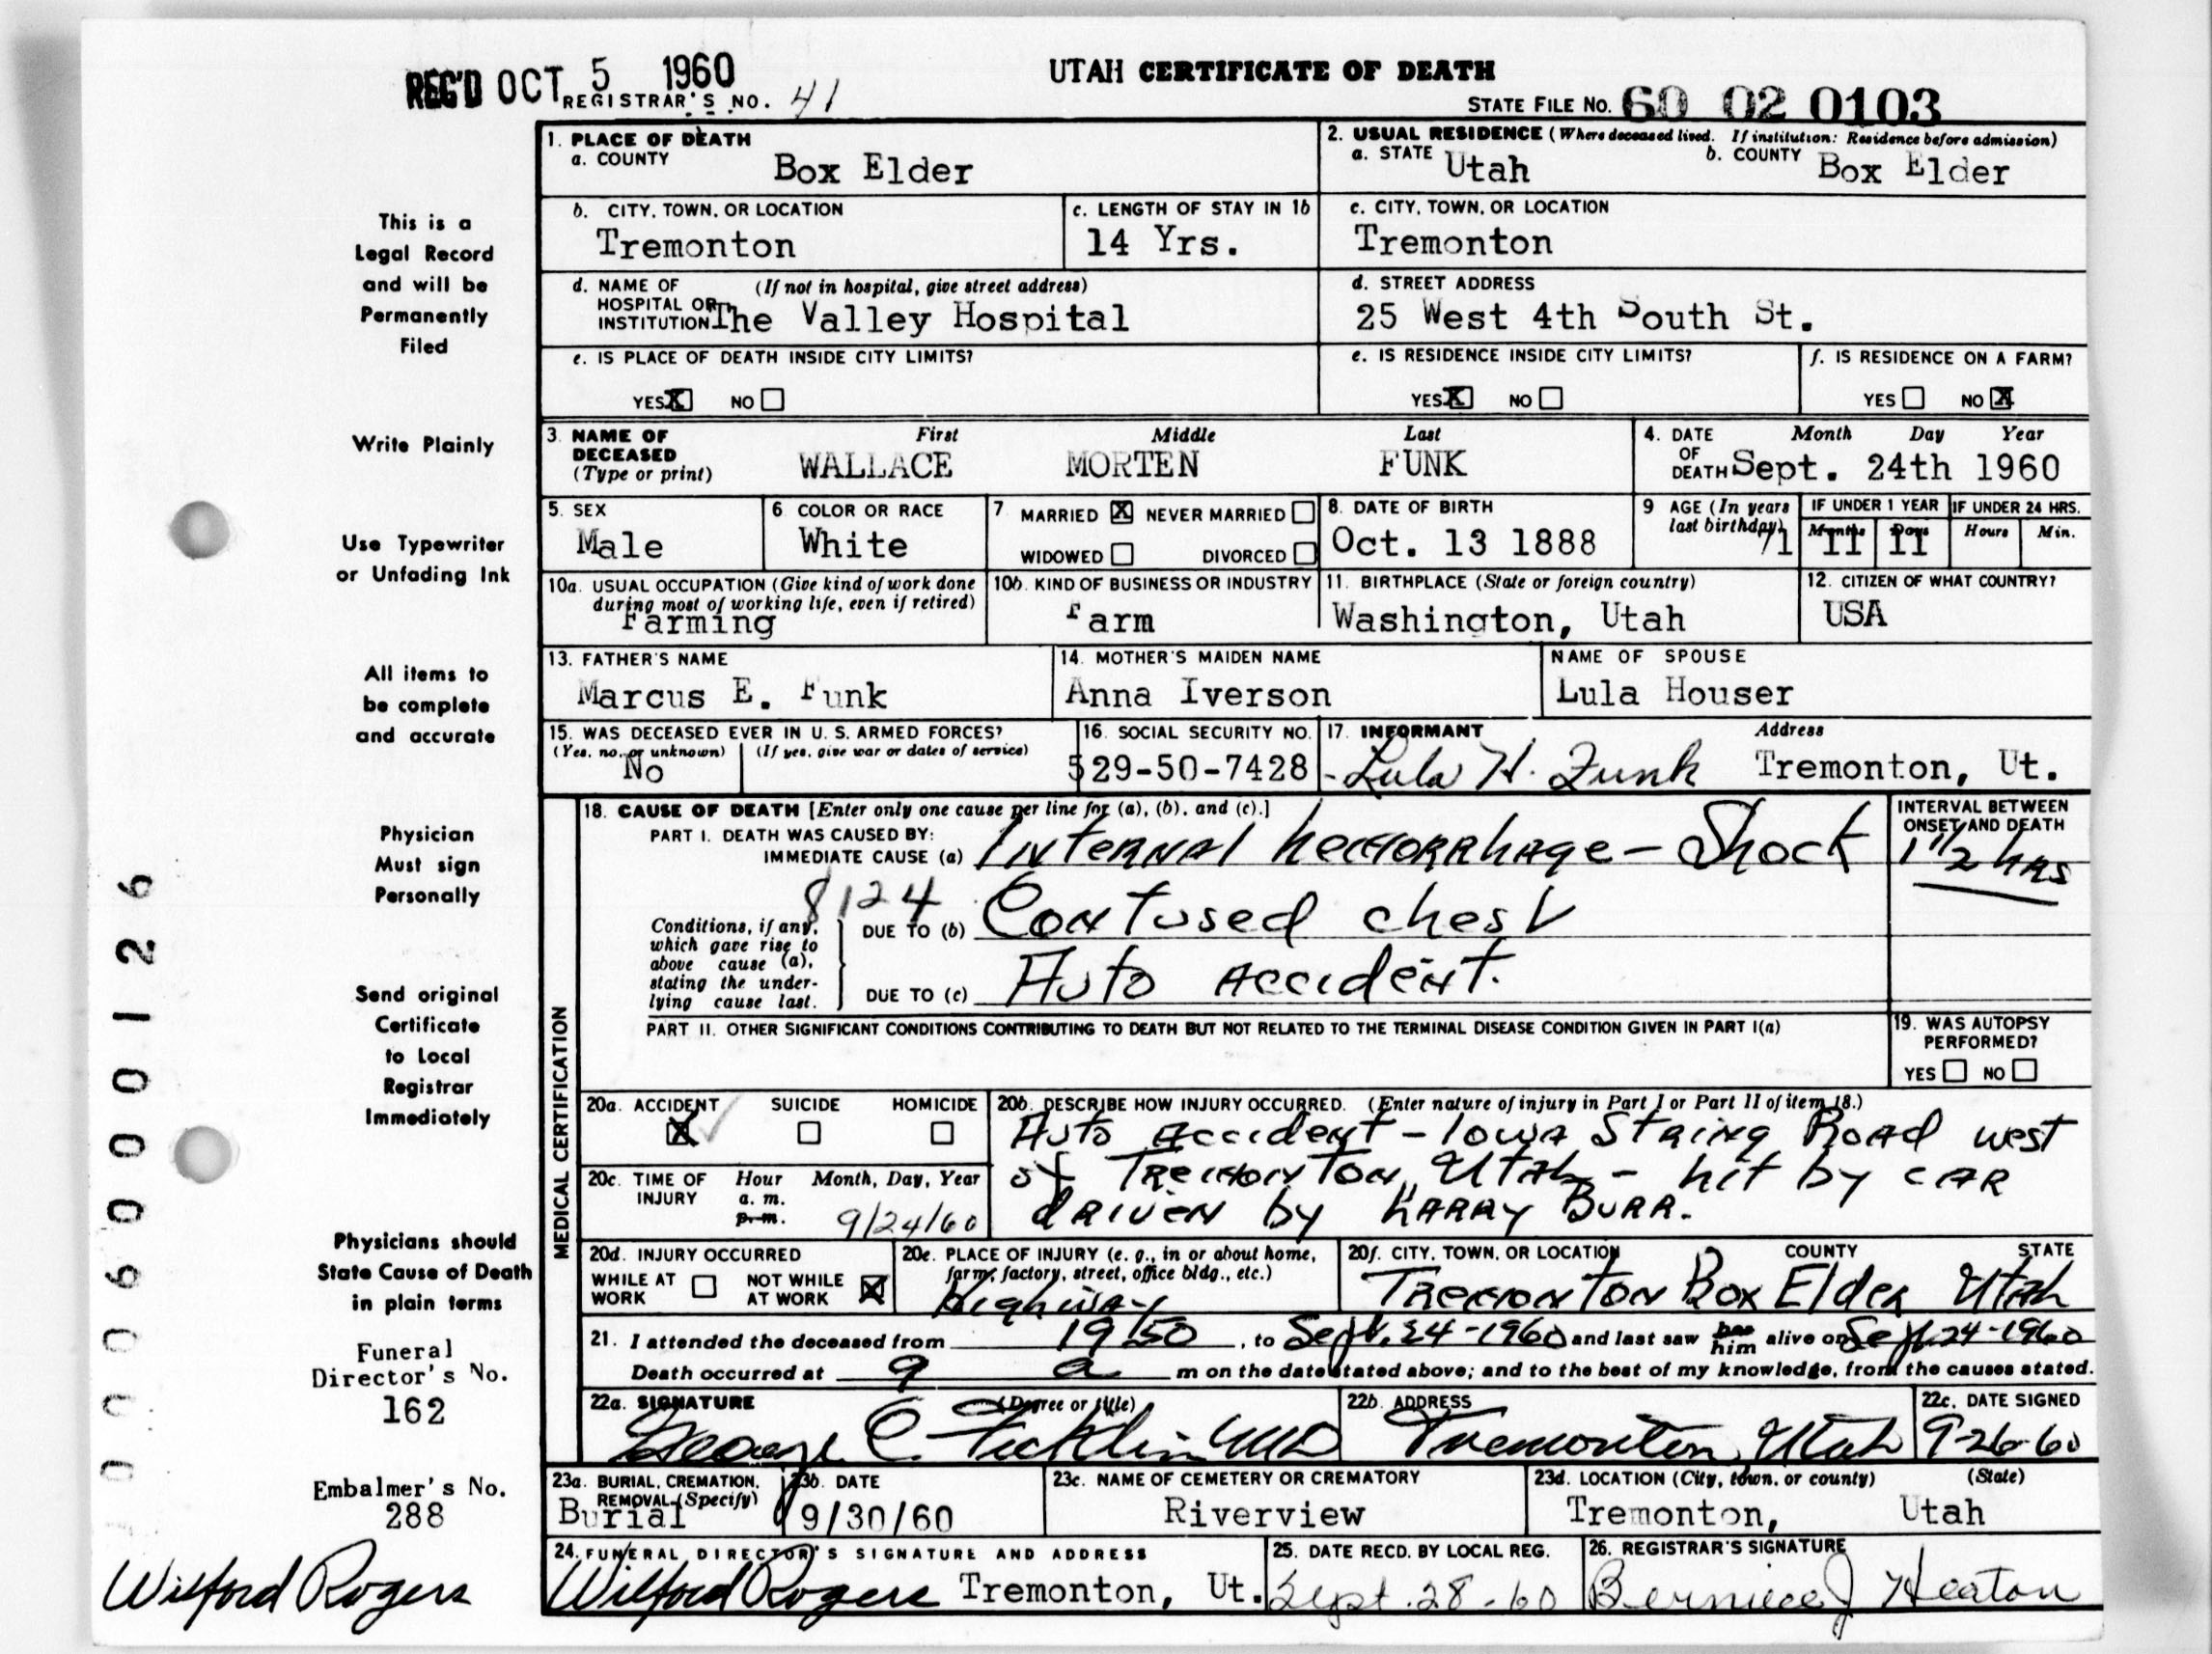 REG'D OCT 5 1960
REGISTRAR'S NO. 41
UTAH CERTIFICATE OF DEATH
STATE FILE NO. 60 02 0103
This is a
Legal Record
and will be
Permanently
Filed
Write Plainly
Use Typewriter
or Unfading Ink
All items to
be complete
and accurate
Physician
Must sign
Personally
Send original
Certificate
to Local
Registrar
Immediately
Physicians should
State Cause of Death
in plain terms
Funeral
Director's No.
162
Embalmer's No.
288
Wilford Rogers
000600126
1. PLACE OF DEATH
a. COUNTY Box Elder
2. USUAL RESIDENCE (Where deceased lived. If institution: Residence before admission)
a. STATE Utah b. COUNTY Box Elder
b. CITY, TOWN, OR LOCATION
Tremonton
c. LENGTH OF STAY IN 1b
14 Yrs.
c. CITY, TOWN, OR LOCATION
Tremonton
d. NAME OF (If not in hospital, give street address)
HOSPITAL OR
INSTITUTION The Valley Hospital
d. STREET ADDRESS
25 West 4th South St.
e. IS PLACE OF DEATH INSIDE CITY LIMITS?
YES X NO
e. IS RESIDENCE INSIDE CITY LIMITS?
YES X NO
f. IS RESIDENCE ON A FARM?
YES NO X
3. NAME OF DECEASED (Type or print)
First Middle Last
WALLACE MORTEN FUNK
4. DATE OF DEATH Month Day Year
Sept. 24th 1960
5. SEX
Male
6. COLOR OR RACE
White
7. MARRIED X NEVER MARRIED
WIDOWED DIVORCED
8. DATE OF BIRTH
Oct. 13 1888
9. AGE (In years last birthday) 71
IF UNDER 1 YEAR
Months 11 Days 11
IF UNDER 24 HRS.
Hours Min.
10a. USUAL OCCUPATION (Give kind of work done
during most of working life, even if retired)
Farming
10b. KIND OF BUSINESS OR INDUSTRY
Farm
11. BIRTHPLACE (State or foreign country)
Washington, Utah
12. CITIZEN OF WHAT COUNTRY?
USA
13. FATHER'S NAME
Marcus E. Funk
14. MOTHER'S MAIDEN NAME
Anna Iverson
NAME OF SPOUSE
Lula Houser
15. WAS DECEASED EVER IN U. S. ARMED FORCES?
(Yes, no, or unknown) (If yes, give war or dates of service)
No
16. SOCIAL SECURITY NO.
529-50-7428
17. INFORMANT Address
Lula H. Funk Tremonton, Ut.
MEDICAL CERTIFICATION
18. CAUSE OF DEATH [Enter only one cause per line for (a), (b), and (c).]
PART I. DEATH WAS CAUSED BY:
IMMEDIATE CAUSE (a) Internal hemorrhage - Shock
INTERVAL BETWEEN
ONSET AND DEATH
1 1/2 hrs
8124
Conditions, if any,
which gave rise to
above cause (a),
stating the under-
lying cause last.
DUE TO (b) Contused chest
DUE TO (c) Auto accident.
PART II. OTHER SIGNIFICANT CONDITIONS CONTRIBUTING TO DEATH BUT NOT RELATED TO THE TERMINAL DISEASE CONDITION GIVEN IN PART I(a)
19. WAS AUTOPSY
PERFORMED?
YES NO
20a. ACCIDENT SUICIDE HOMICIDE
X
20b. DESCRIBE HOW INJURY OCCURRED. (Enter nature of injury in Part I or Part II of item 18.)
Auto Accident - Iowa String Road west
of Tremonton, Utah - hit by car
driven by Harry Burr.
20c. TIME OF INJURY Hour Month, Day, Year
a. m.
p. m. 9/24/60
20d. INJURY OCCURRED
WHILE AT WORK NOT WHILE AT WORK X
20e. PLACE OF INJURY (e. g., in or about home,
farm, factory, street, office bldg., etc.)
Highway
20f. CITY, TOWN, OR LOCATION COUNTY STATE
Tremonton Box Elder Utah
21. I attended the deceased from 1950, to Sept. 24-1960 and last saw her him alive on Sept 24-1960
Death occurred at 9 a m on the date stated above; and to the best of my knowledge, from the causes stated.
22a. SIGNATURE (Degree or title)
George C. Ficklin MD
22b. ADDRESS
Tremonton, Utah
22c. DATE SIGNED
9-26-60
23a. BURIAL, CREMATION,
REMOVAL (Specify)
Burial
23b. DATE
9/30/60
23c. NAME OF CEMETERY OR CREMATORY
Riverview
23d. LOCATION (City, town, or county) (State)
Tremonton, Utah
24. FUNERAL DIRECTOR'S SIGNATURE AND ADDRESS
Wilford Rogers Tremonton, Ut.
25. DATE RECD. BY LOCAL REG.
Sept. 28-60
26. REGISTRAR'S SIGNATURE
Berniece J Heaton